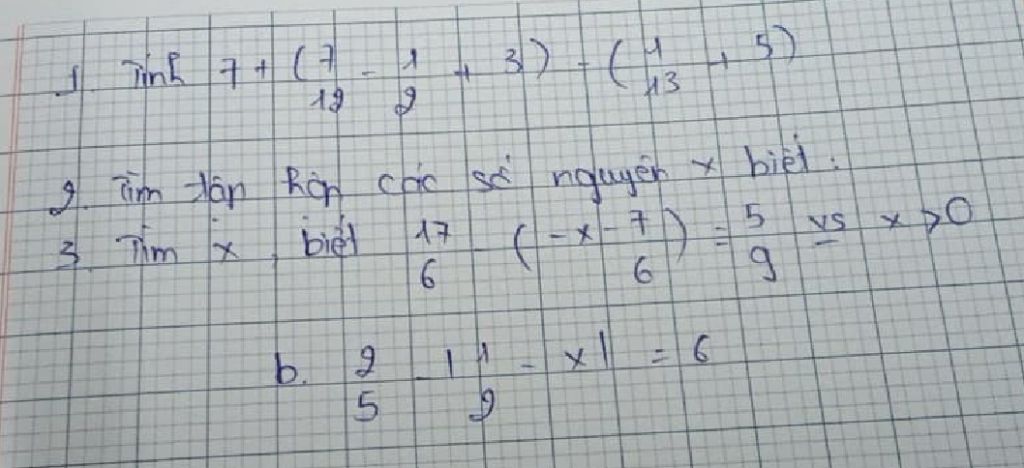 1. Tính 7 + (7/12 - 1/2 + 3) - (1/13 + 5)
2. Tìm tập hợp các số nguyên x biết:
3. Tìm x, biết 17/6 - (-x - 7/6) = 5/9 vs x > 0
b. 2/5 - |1/2 - x| = 6